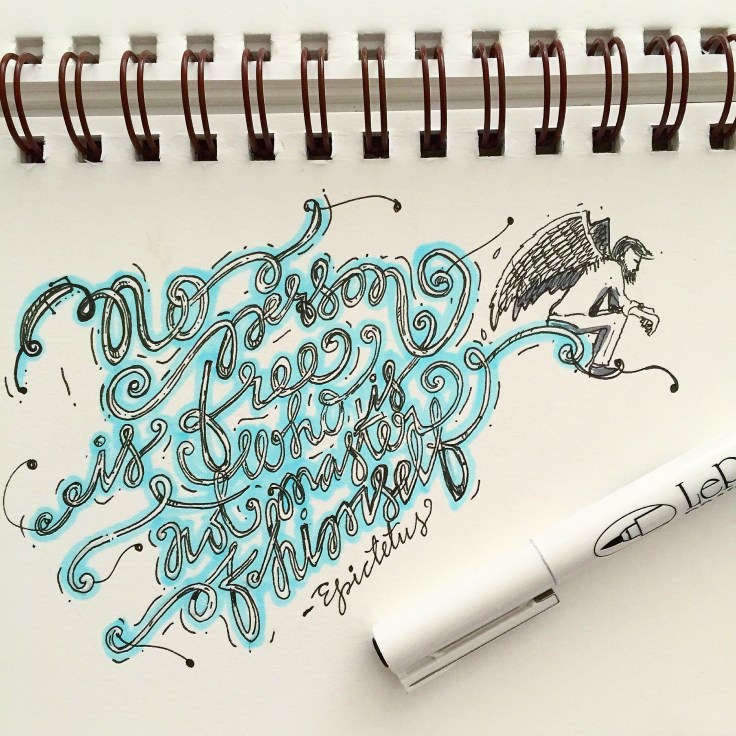 No person
is free
who is
not master
of himself
-Epictetus
LeP